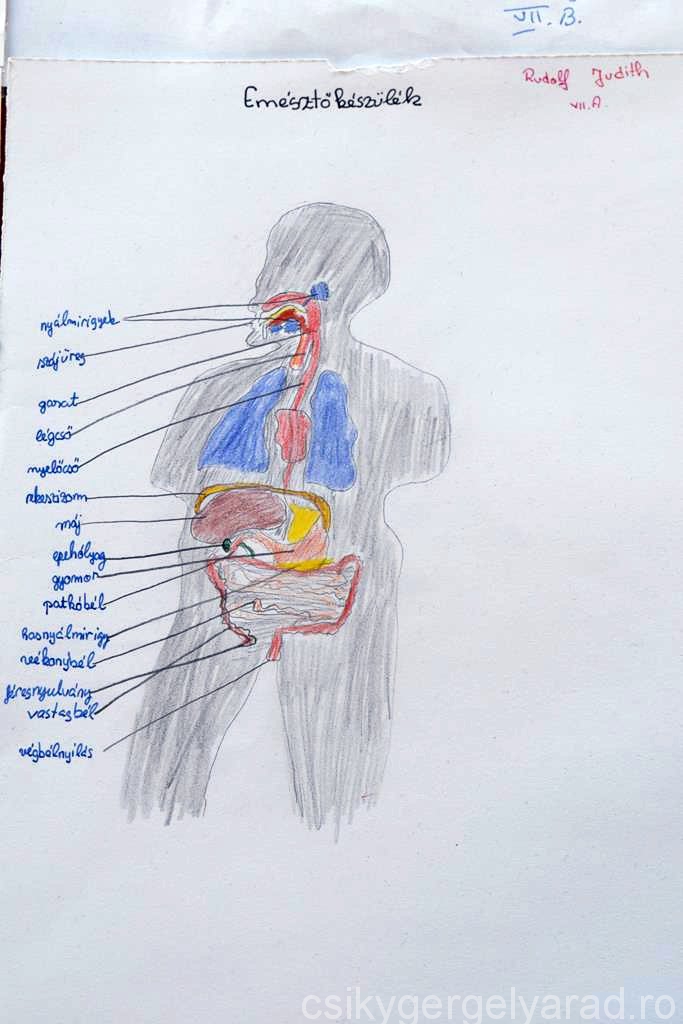 VII. B.
Rudolf Judith
VII.A.
Emésztőkészülék
nyálmirigyek
szájüreg
garat
légcső
nyelőcső
rekeszizom
máj
epehólyag
gyomor
patkóbél
hasnyálmirigy
vékonybél
féregnyulvány
vastagbél
végbélnyilás
csikygergelyarad.ro